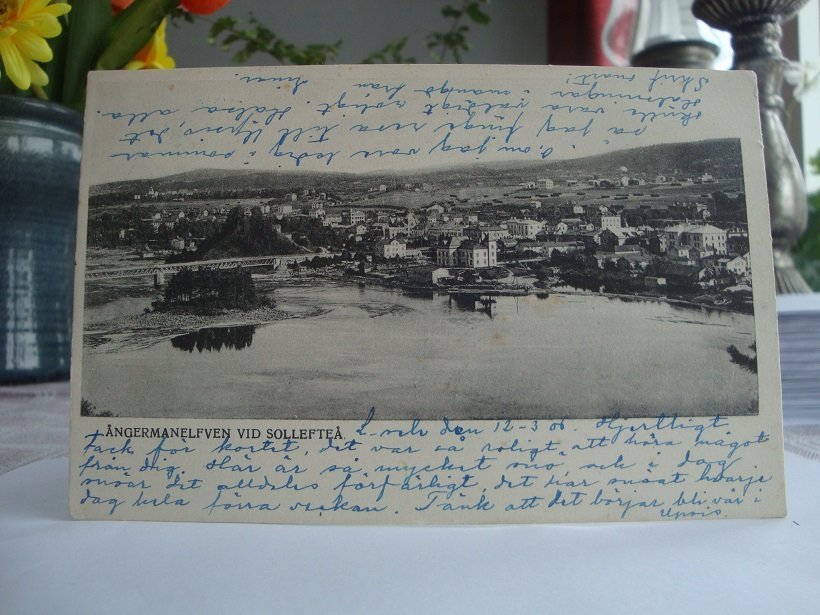 ÅNGERMANELFVEN VID SOLLEFTEÅ.
den 12-3 06. Hjertligt
tack för kortet, det var så roligt att höra något
från dig. Här är så mycket snö, och i dag
snöar det alldeles förfärligt, det har snöat hvarje
dag hela förra veckan. Tänk att det börjar bli vår i
Upsis.
O, om jag vore ledig i sommar
så jag finge resa till Upsis, det
skulle vara väldigt roligt. Hälsa alla.
Hälsningar i mängd från
Skrif snart!